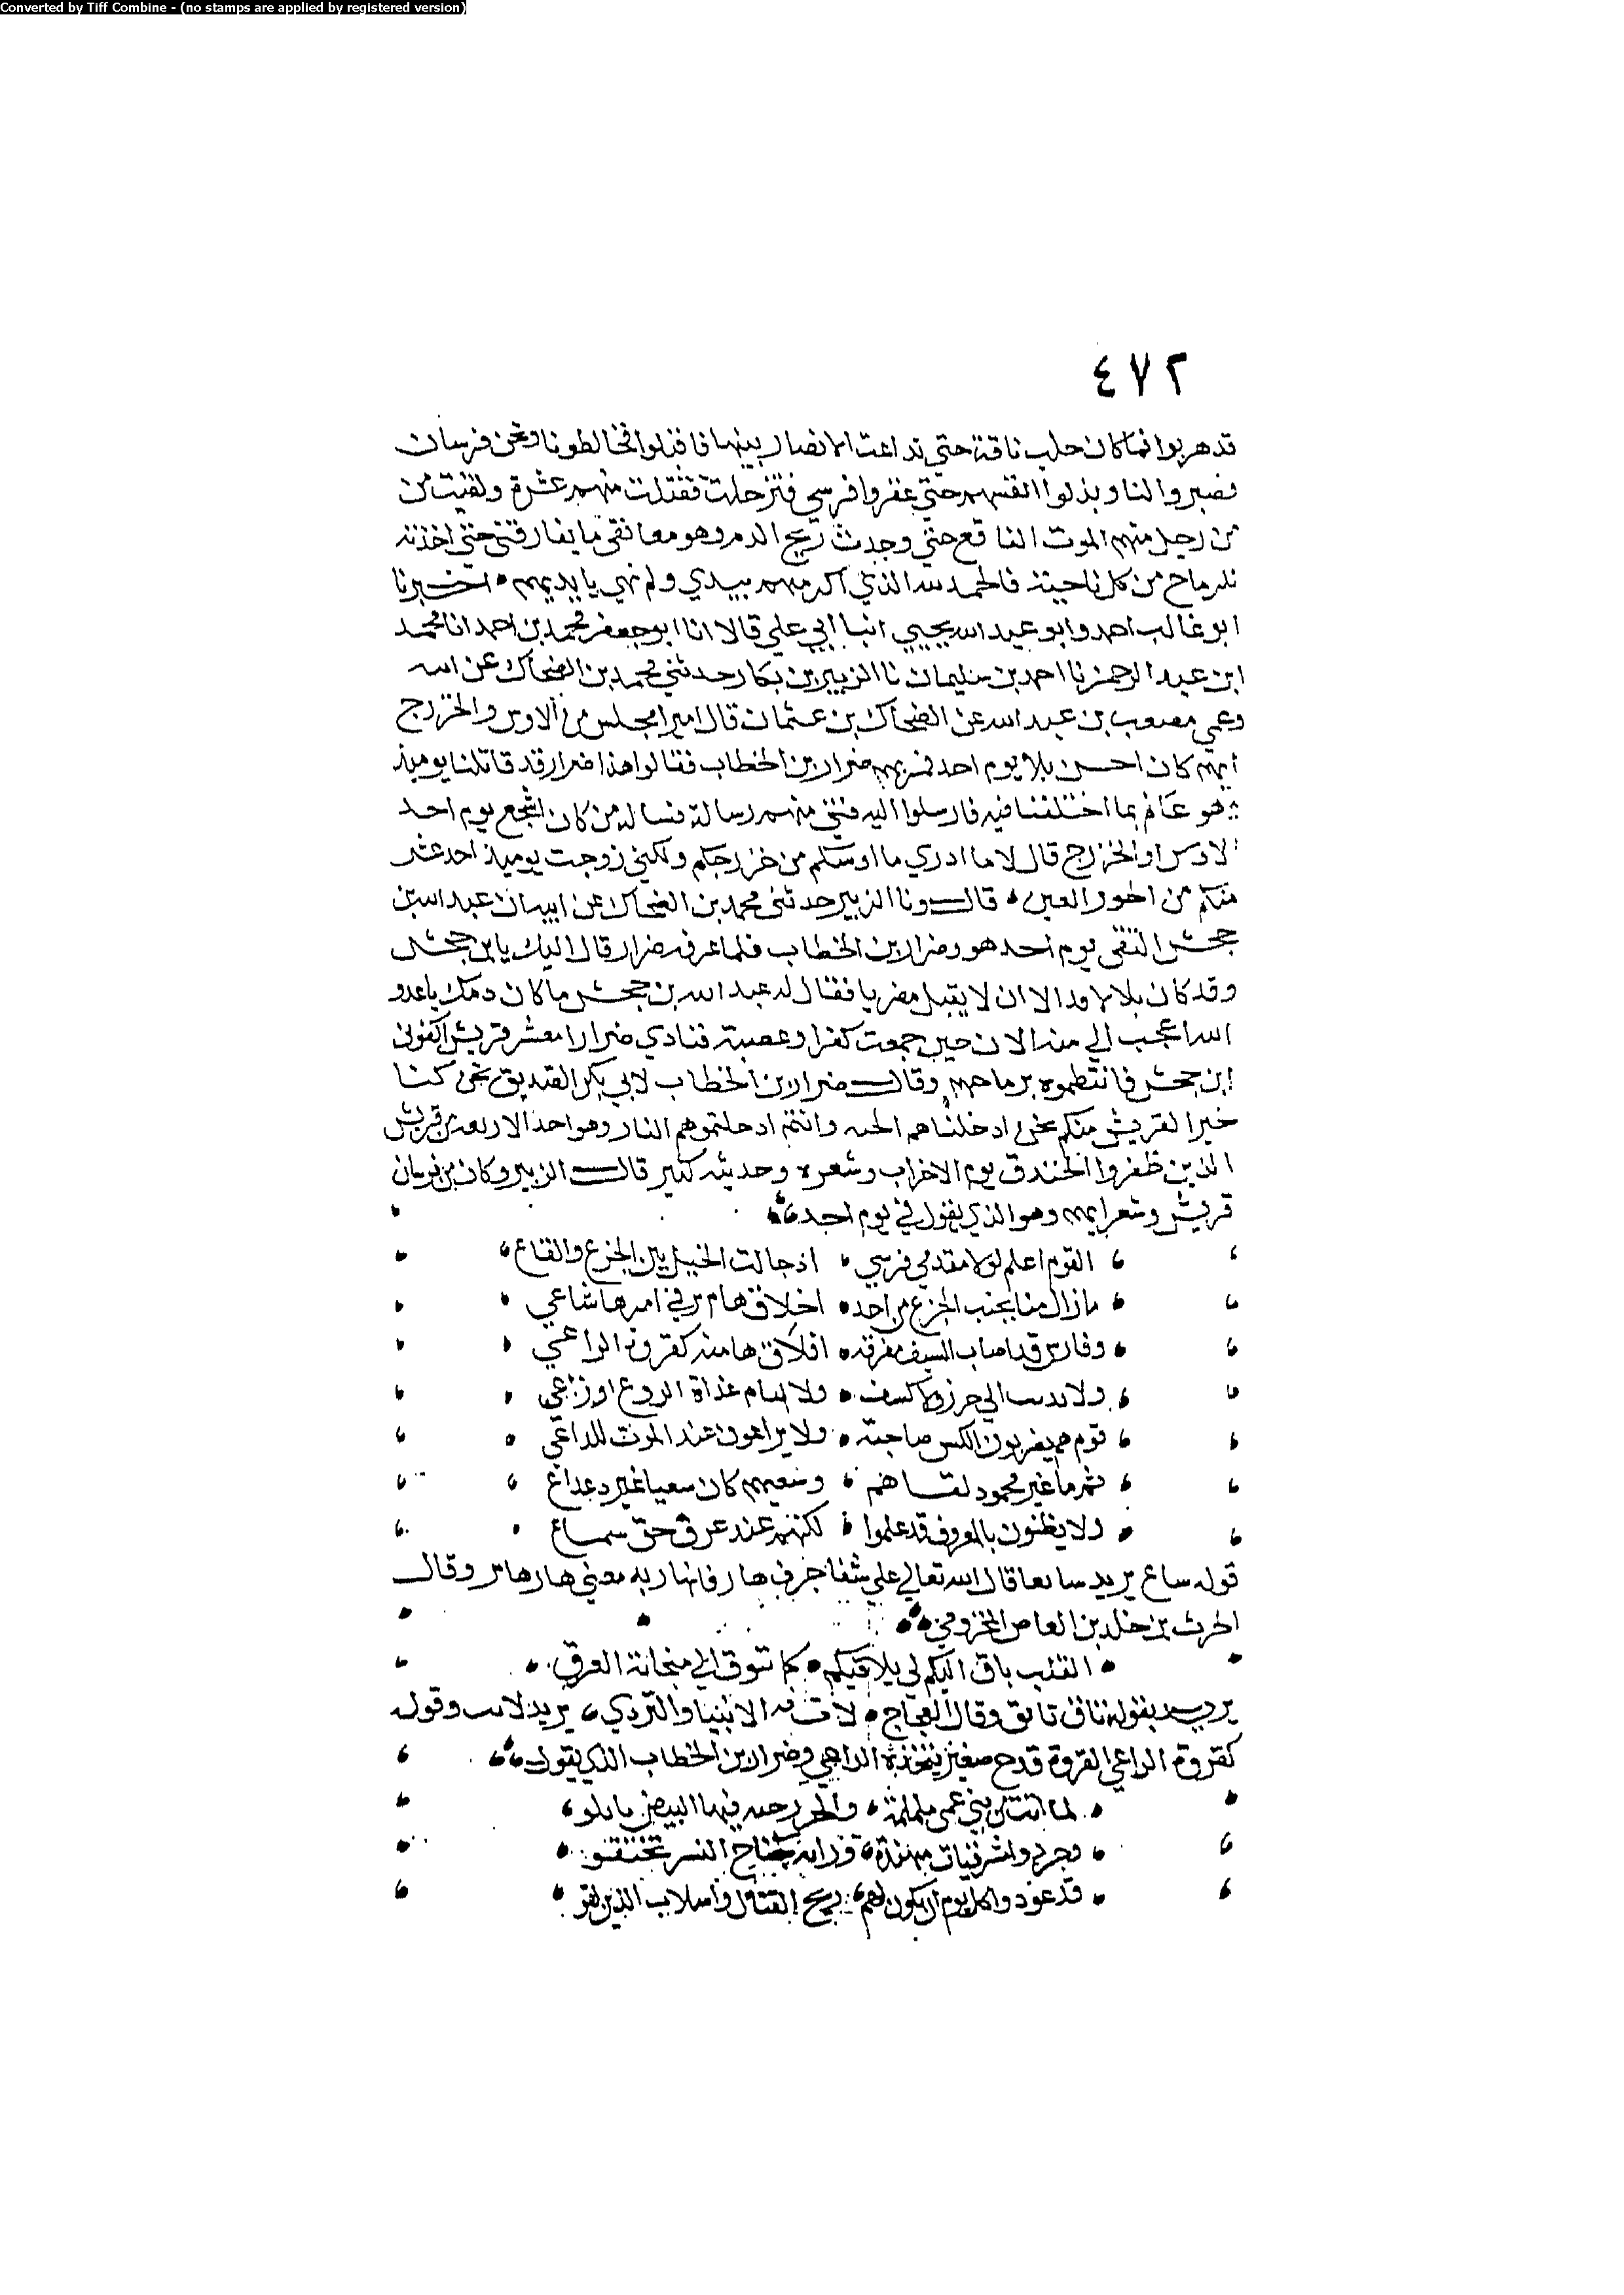 Converted by Tiff Combine - (no stamps are applied by registered version)
٤٧٢
قد هربوا فما كان حلب ناقة حتى تداعت الانصار بينها فاقبلوا فخالطونا ونحن فرسان
فصبروا لنا وبذلوا انفسهم حتى عقروا فرسي فترجلت فقتلت منهم عشرة ولقيت من
من رجل منهم الموت الناقع حتى وجدت ريح الدم وهو معانقي ما يفارقني حتى اخذته
الرماح من كل ناحية فالحمد لله الذي اكرمهم بيدي ولم يهني بايديهم اخبرنا
ابو غالب احمد وابو عبد الله يحيي انبا ابي علي قالا انا ابو جعفر محمد بن احمد انا محمد
ابن عبد الرحمن نا احمد بن سليمان نا الزبير بن بكار حدثني محمد بن الضحاك عن ابيه
وعمي مصعب بن عبد الله عن الضحاك بن عثمان قال امترا مجلس من الاوس والخزرج
ايهم كان احسن بلا يوم احد فمر بهم ضرار بن الخطاب فقالوا هذا ضرار قد قاتلنا يوميذ
وهو عالم بما اختلفنا فيه فارسلوا اليه فتى منهم رسالة فساله من كان اشجع يوم احد
الاوس او الخزرج قال لا ما ادري ما اوسكم من خزرجكم ولكني زوجت يوميذ احد عشر
منكم من الحور العين قال ونا الزبير حدثني محمد بن الضحاك عن ابيه ان عبد الله بن
جحش التقى يوم احد هو وضرار بن الخطاب فلما عرفه ضرار قال اليك يا بن جحش
وقد كان الا ان لا يقتل مضريا فقال له عبد الله بن جحش ما كان دمك يا عدو
الله اعجب الي منه الان حين جمعت كفرا وعصبية فنادي ضرار يا معشر قريش اكفوني
ابن جحش فانتظموه برماحهم وقال ضرار بن الخطاب لابي بكر الصديق نحن كنا
خيرا لقريش منكم نحن ادخلناهم الجنه وانتم ادخلتموهم النار وهو احد الاربعة من قريش
الذين ظفروا الخندق يوم الاحزاب وشعره وحديثه كثير قال الزبير وكان من فرسان
قريش وشعرايهم وهو الذي يقول في يوم احد
القوم اعلم لولا مقدمي فرسي اذ جالت الخيل بين الجزع والقاع
ما زال منا بجنب الجزع من احد اخلاق هام تزفي امرها شاعي
وفارس قد اصاب السيف مفرقه افلاق هامته كفروة الراعي
ولا الي خور ولا كسف ولا ليام غداة الروع اوزاعي
قوم هم يضربون الكبش ضاحية ولا يراعون عند الموت للداعي
شم ما غير محمود لقاهم وسعيهم كان سعيا غير دعداع
ولا يظنون بالمعروف قد علموا لكنهم عند عرف حق سماع
قوله ساع يريد سايعا قال الله تعالي علي شفا جرف هار فانهار به معني هار هاير وقال
الحرث بن خلد بن العاص المخزومي
القلب تاق اليكم لي يلاقيكم كما تتوق الي منجاته الغرق
يريد بقوله تاق تايق وقال العجاج لاث به الاشيا والعبري يريد لايث وقوله
كفروة الراعي الفروة قدح صغير يتخذه الراعي وضرار بن الخطاب الذي يقول
لما اتت من بني عمي ململمة والخزرجيه فيها البيض تاتلق
وجردوا مشرفيات مهندة وراية كجناح النسر تختفق
قد عودوا كل يوم ان يكون لهم ريح القتال واسلاب الذين لقو